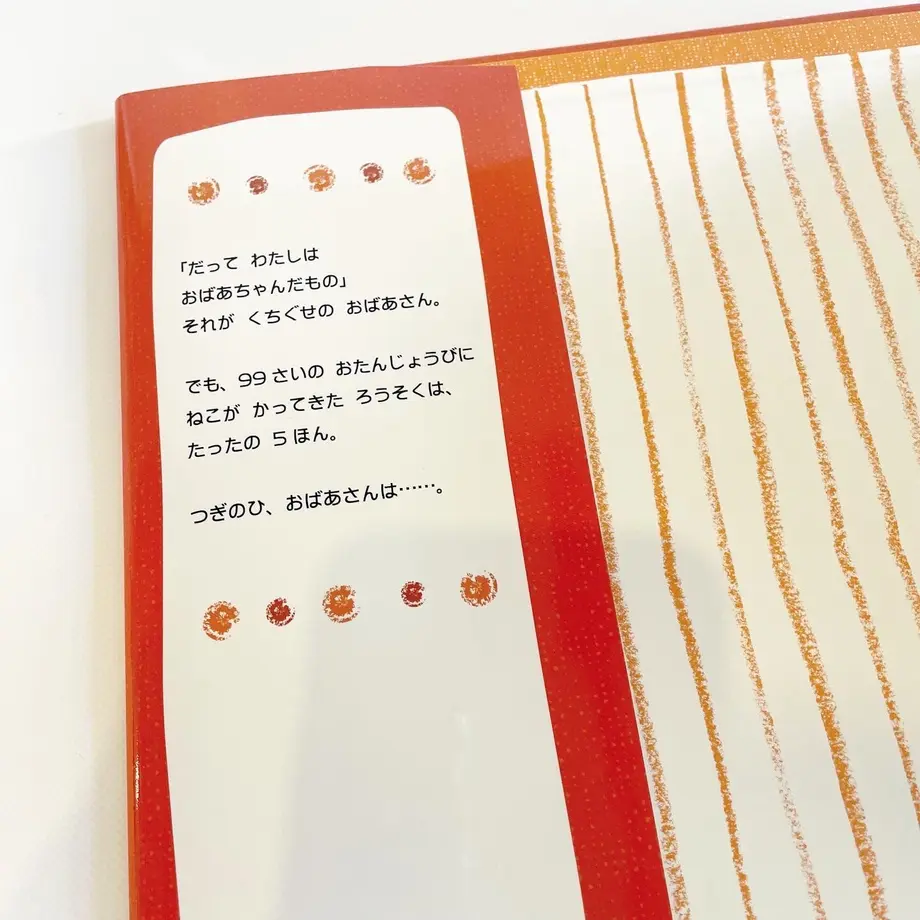 「だって わたしは
おばあちゃんだもの」
それが くちぐせの おばあさん。
でも、99さいの おたんじょうびに
ねこが かってきた ろうそくは、
たったの 5ほん。
つぎのひ、おばあさんは……。